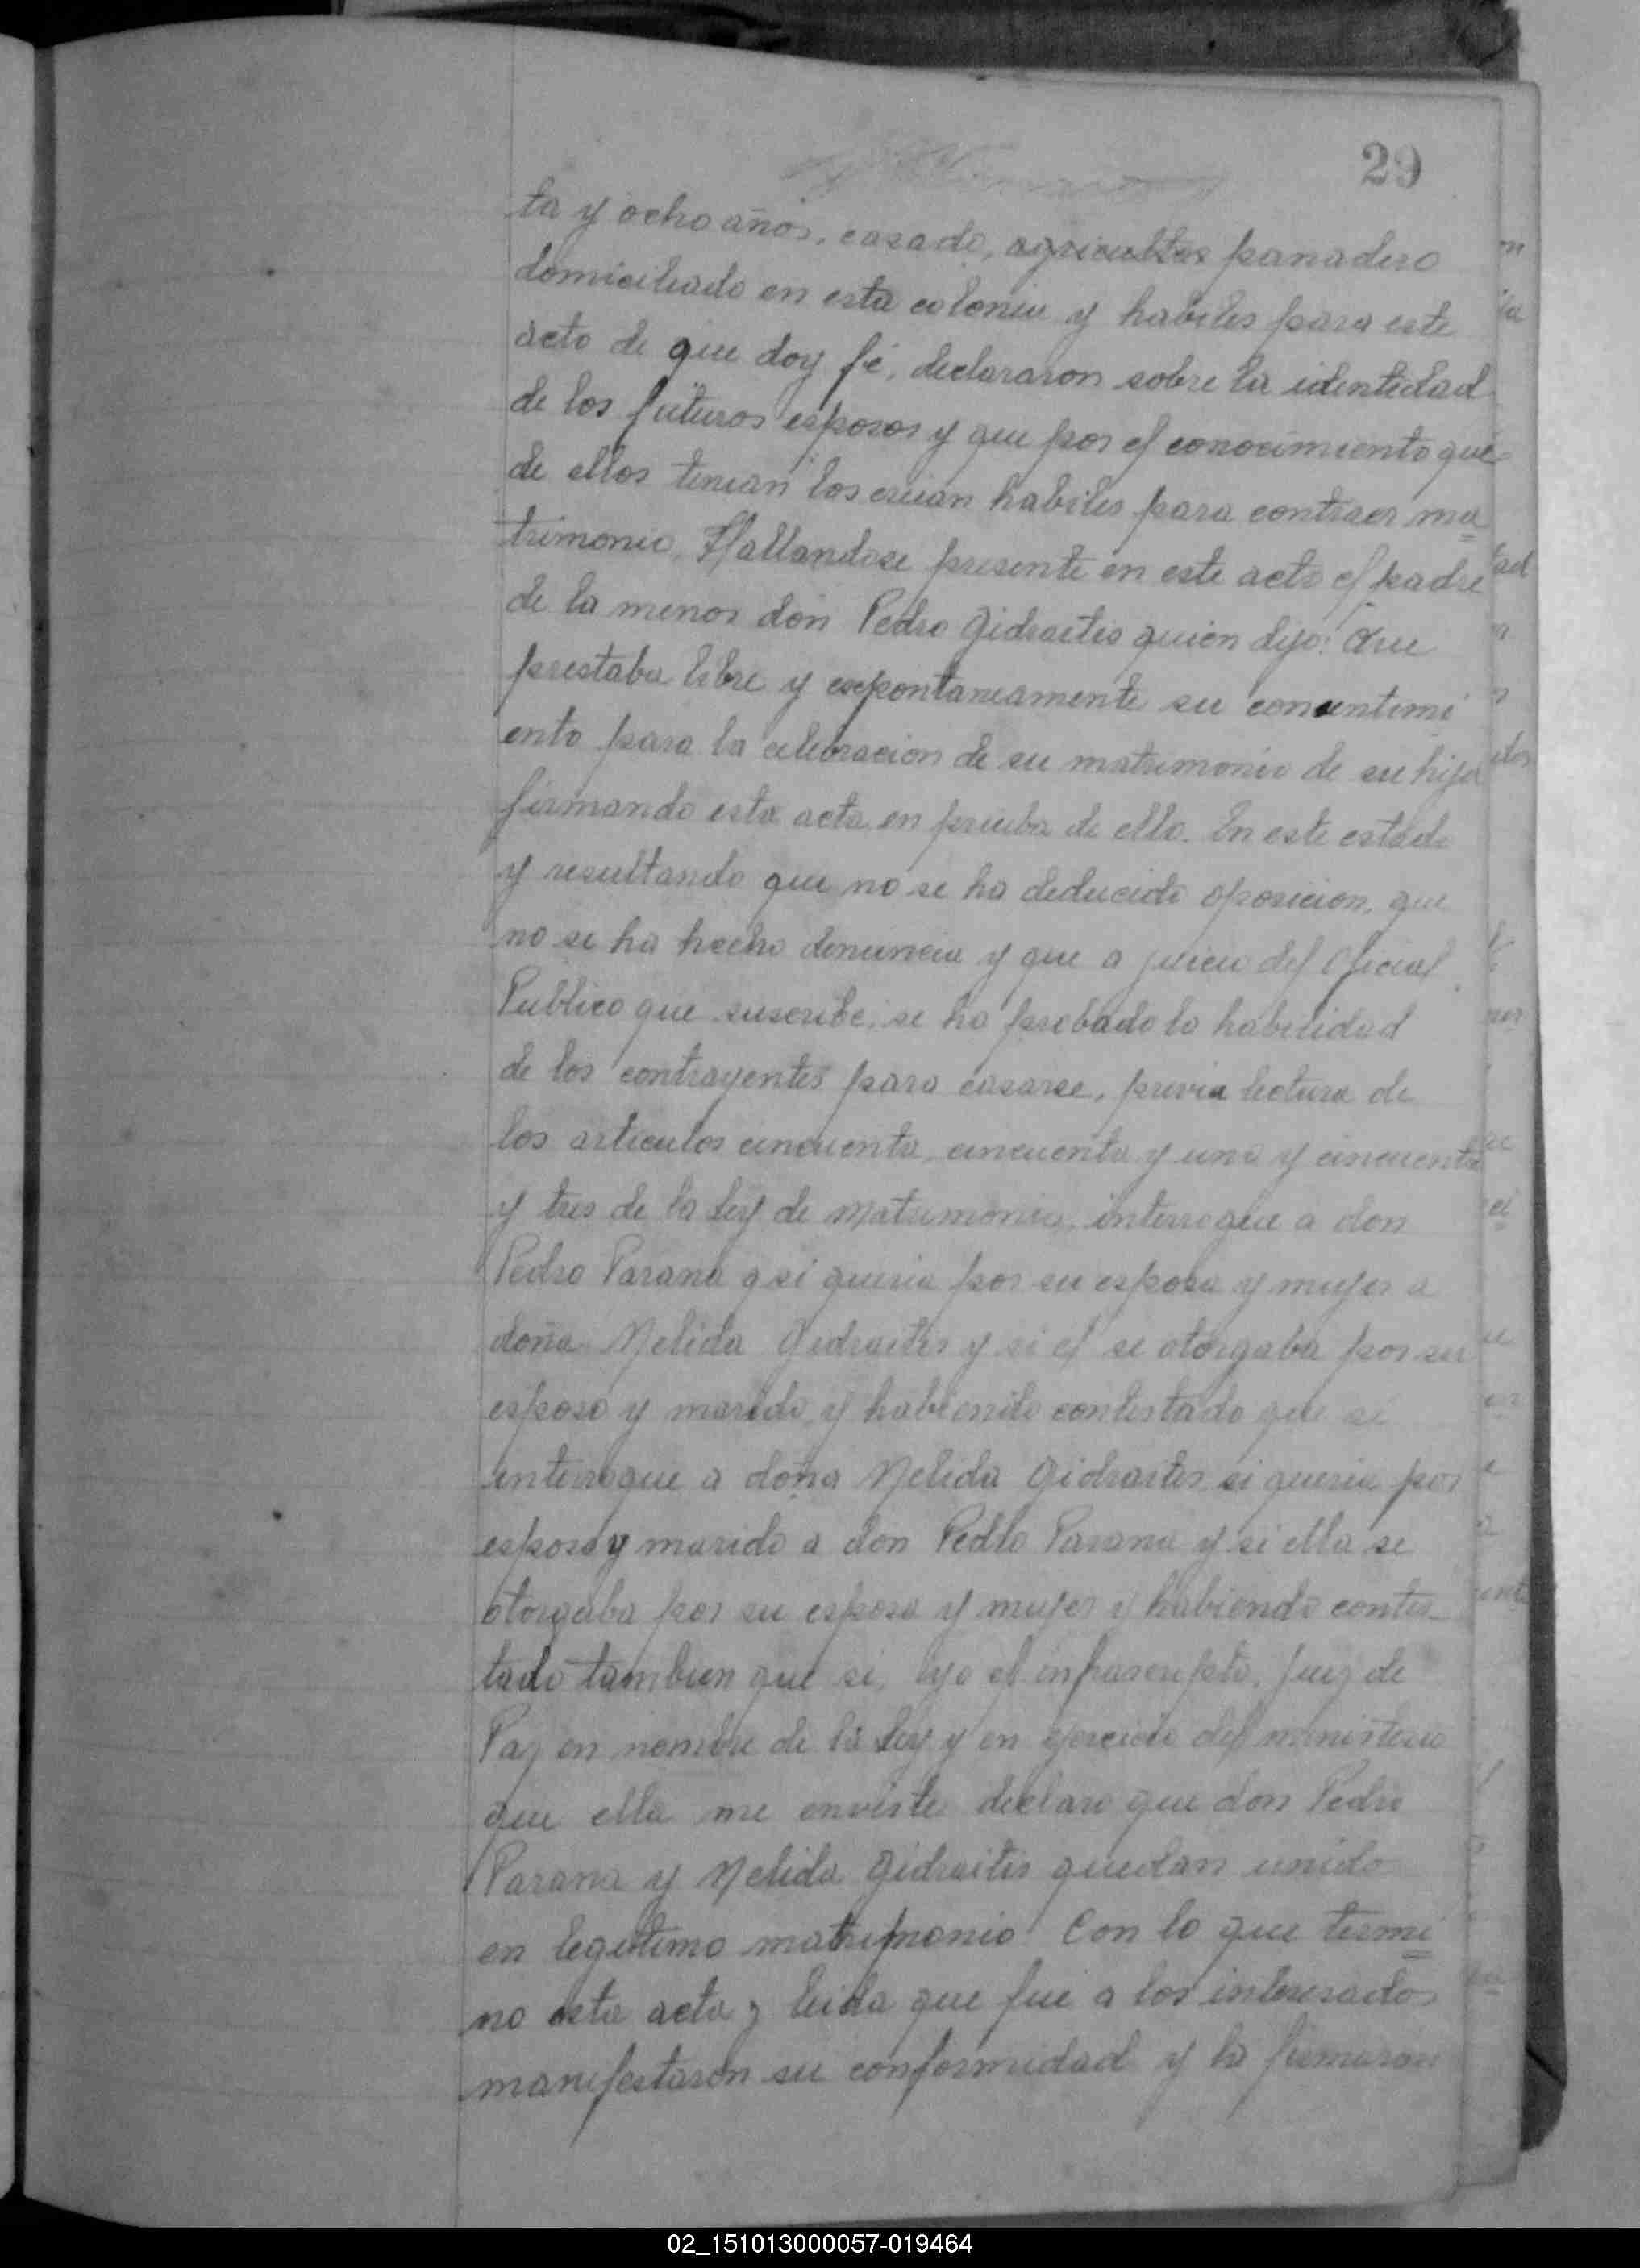 29
ta y ocho años, casado, agricultor panadero
domiciliado en esta colonia y habiles para este
acto de que doy fé, declararon sobre la identidad
de los futuros esposos y que por el conocimiento que
de ellos tenian los creian habiles para contraer ma
trimonio. Hallandose presente en este acto el padre
de la menor don Pedro Gidraitis quien dijo: Que
prestaba libre y espontaneamente su consentimi
ento para la celebracion de su matrimonio de su hija
firmando esta acta en prueba de ello. En este estado
y resultando que no se ha deducido oposicion, que
no se ha hecho denuncia y que a juicio del Oficial
Publico que suscribe, se ha probado la habilidad
de los contrayentes para casarse, previa lectura de
los articulos cincuenta, cincuenta y uno y cincuenta
y tres de la ley de matrimonio, interrogue a don
Pedro Parana si queria por su esposa y mujer a
doña Nelida Gidraitis y si el se otorgaba por su
esposo y marido, y habiendo contestado que si
interrogue a doña Nelida Gidraitis si queria por
esposo y marido a don Pedro Parana y si ella se
otorgaba por su esposa y mujer y habiendo contes
tado tambien que si, yo el infrascripto, Juez de
Paz en nombre de la ley y en ejercicio del ministerio
que ella me enviste declaro que don Pedro
Parana y Nelida Gidraitis quedan unido
en legitimo matrimonio. Con lo que termi
no esta acta y leida que fue a los interesados
manifestaron su conformidad y la firmaron
02_151013000057-019464